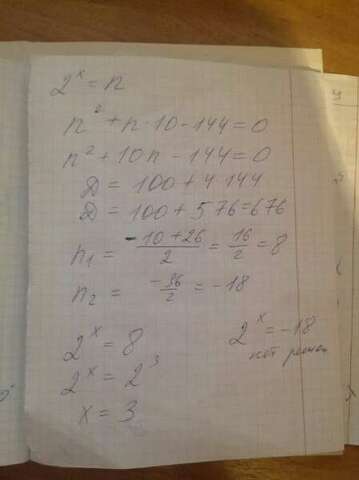 2^x = n
n² + n · 10 - 144 = 0
n² + 10n - 144 = 0
Д = 100 + 4 · 144
Д = 100 + 576 = 676
n₁ = (-10 + 26)/2 = 16/2 = 8
n₂ = -36/2 = -18
2^x = 8
2^x = 2³
x = 3
2^x = -18
нет решен